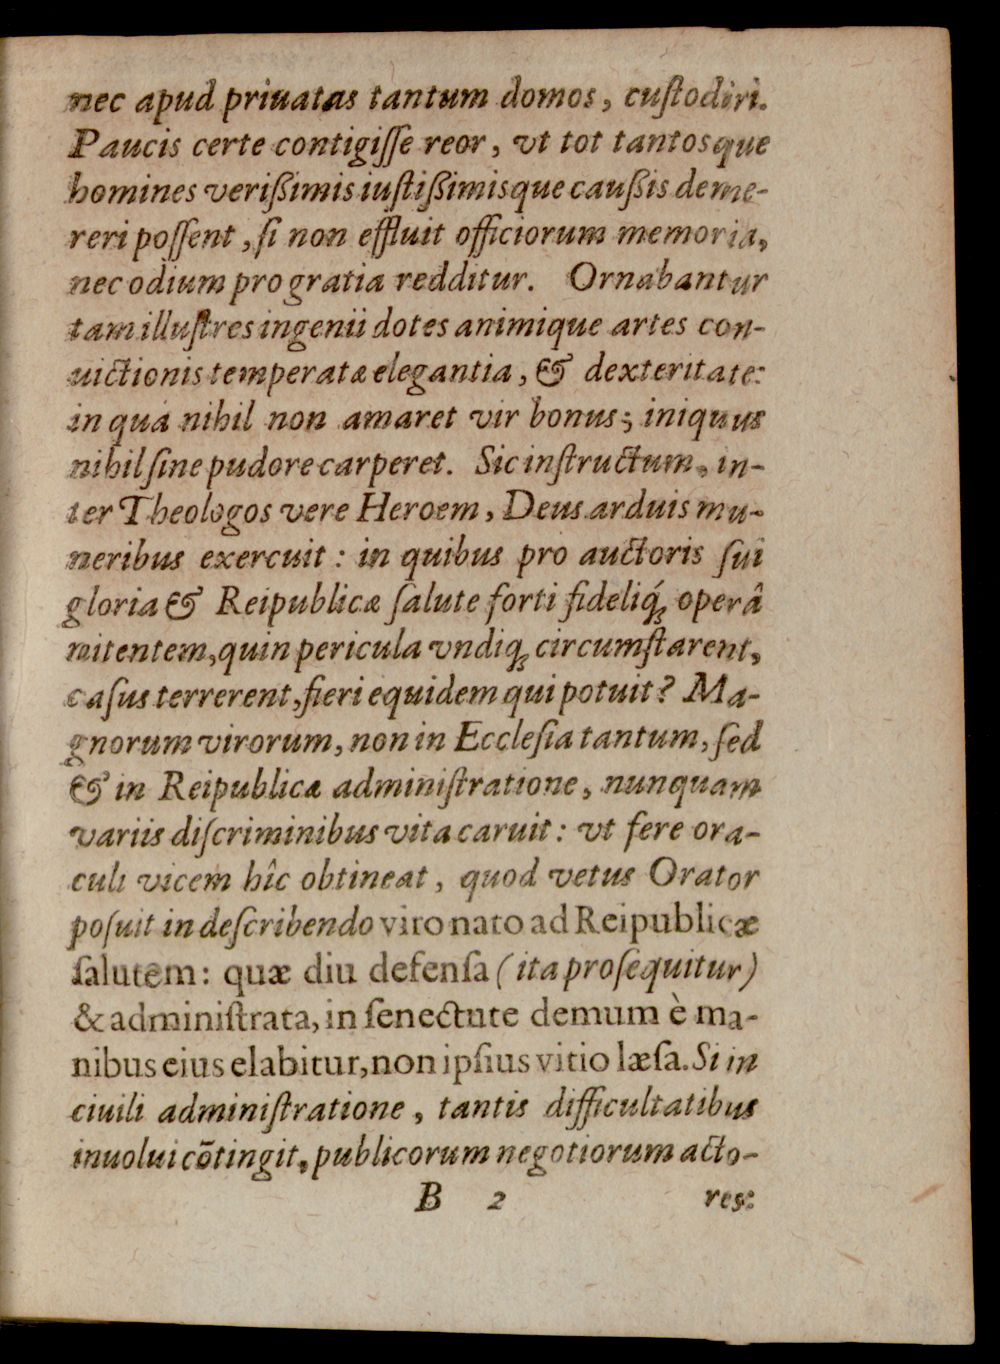 nec apud priuatas tantum domos, cuſtodiri.
Paucis certe contigiſſe reor, vt tot tantosque
homines verißimis iuſtißimisque caußis deme-
reri poſſent, ſi non effluit officiorum memoria,
nec odium pro gratia redditur. Ornabantur
tam illuſtres ingenii dotes animique artes con-
uictionis temperatæ elegantia, & dexteritate:
in qua nihil non amaret vir bonus; iniquus
nihil ſine pudore carperet. Sic inſtructum, in-
ter Theologos vere Heroem, Deus arduis mu-
neribus exercuit: in quibus pro auctoris ſui
gloria & Reipublicæ ſalute forti fideliq́ꝫ operâ
nitentem, quin pericula vndiqꝫ circumſtarent,
caſus terrerent, fieri equidem qui potuit? Ma-
gnorum virorum, non in Eccleſia tantum, ſed
& in Reipublicæ adminiſtratione, nunquam
variis diſcriminibus vita caruit: vt fere ora-
culi vicem hîc obtineat, quod vetus Orator
poſuit in deſcribendo viro nato ad Reipublicæ
ſalutem: quæ diu defenſa (ita proſequitur)
& adminiſtrata, in ſenectute demum è ma-
nibus eius elabitur, non ipſius vitio læſa. Si in
ciuili adminiſtratione, tantis difficultatibus
inuolui cōtingit, publicorum negotiorum acto-
B 2 res: